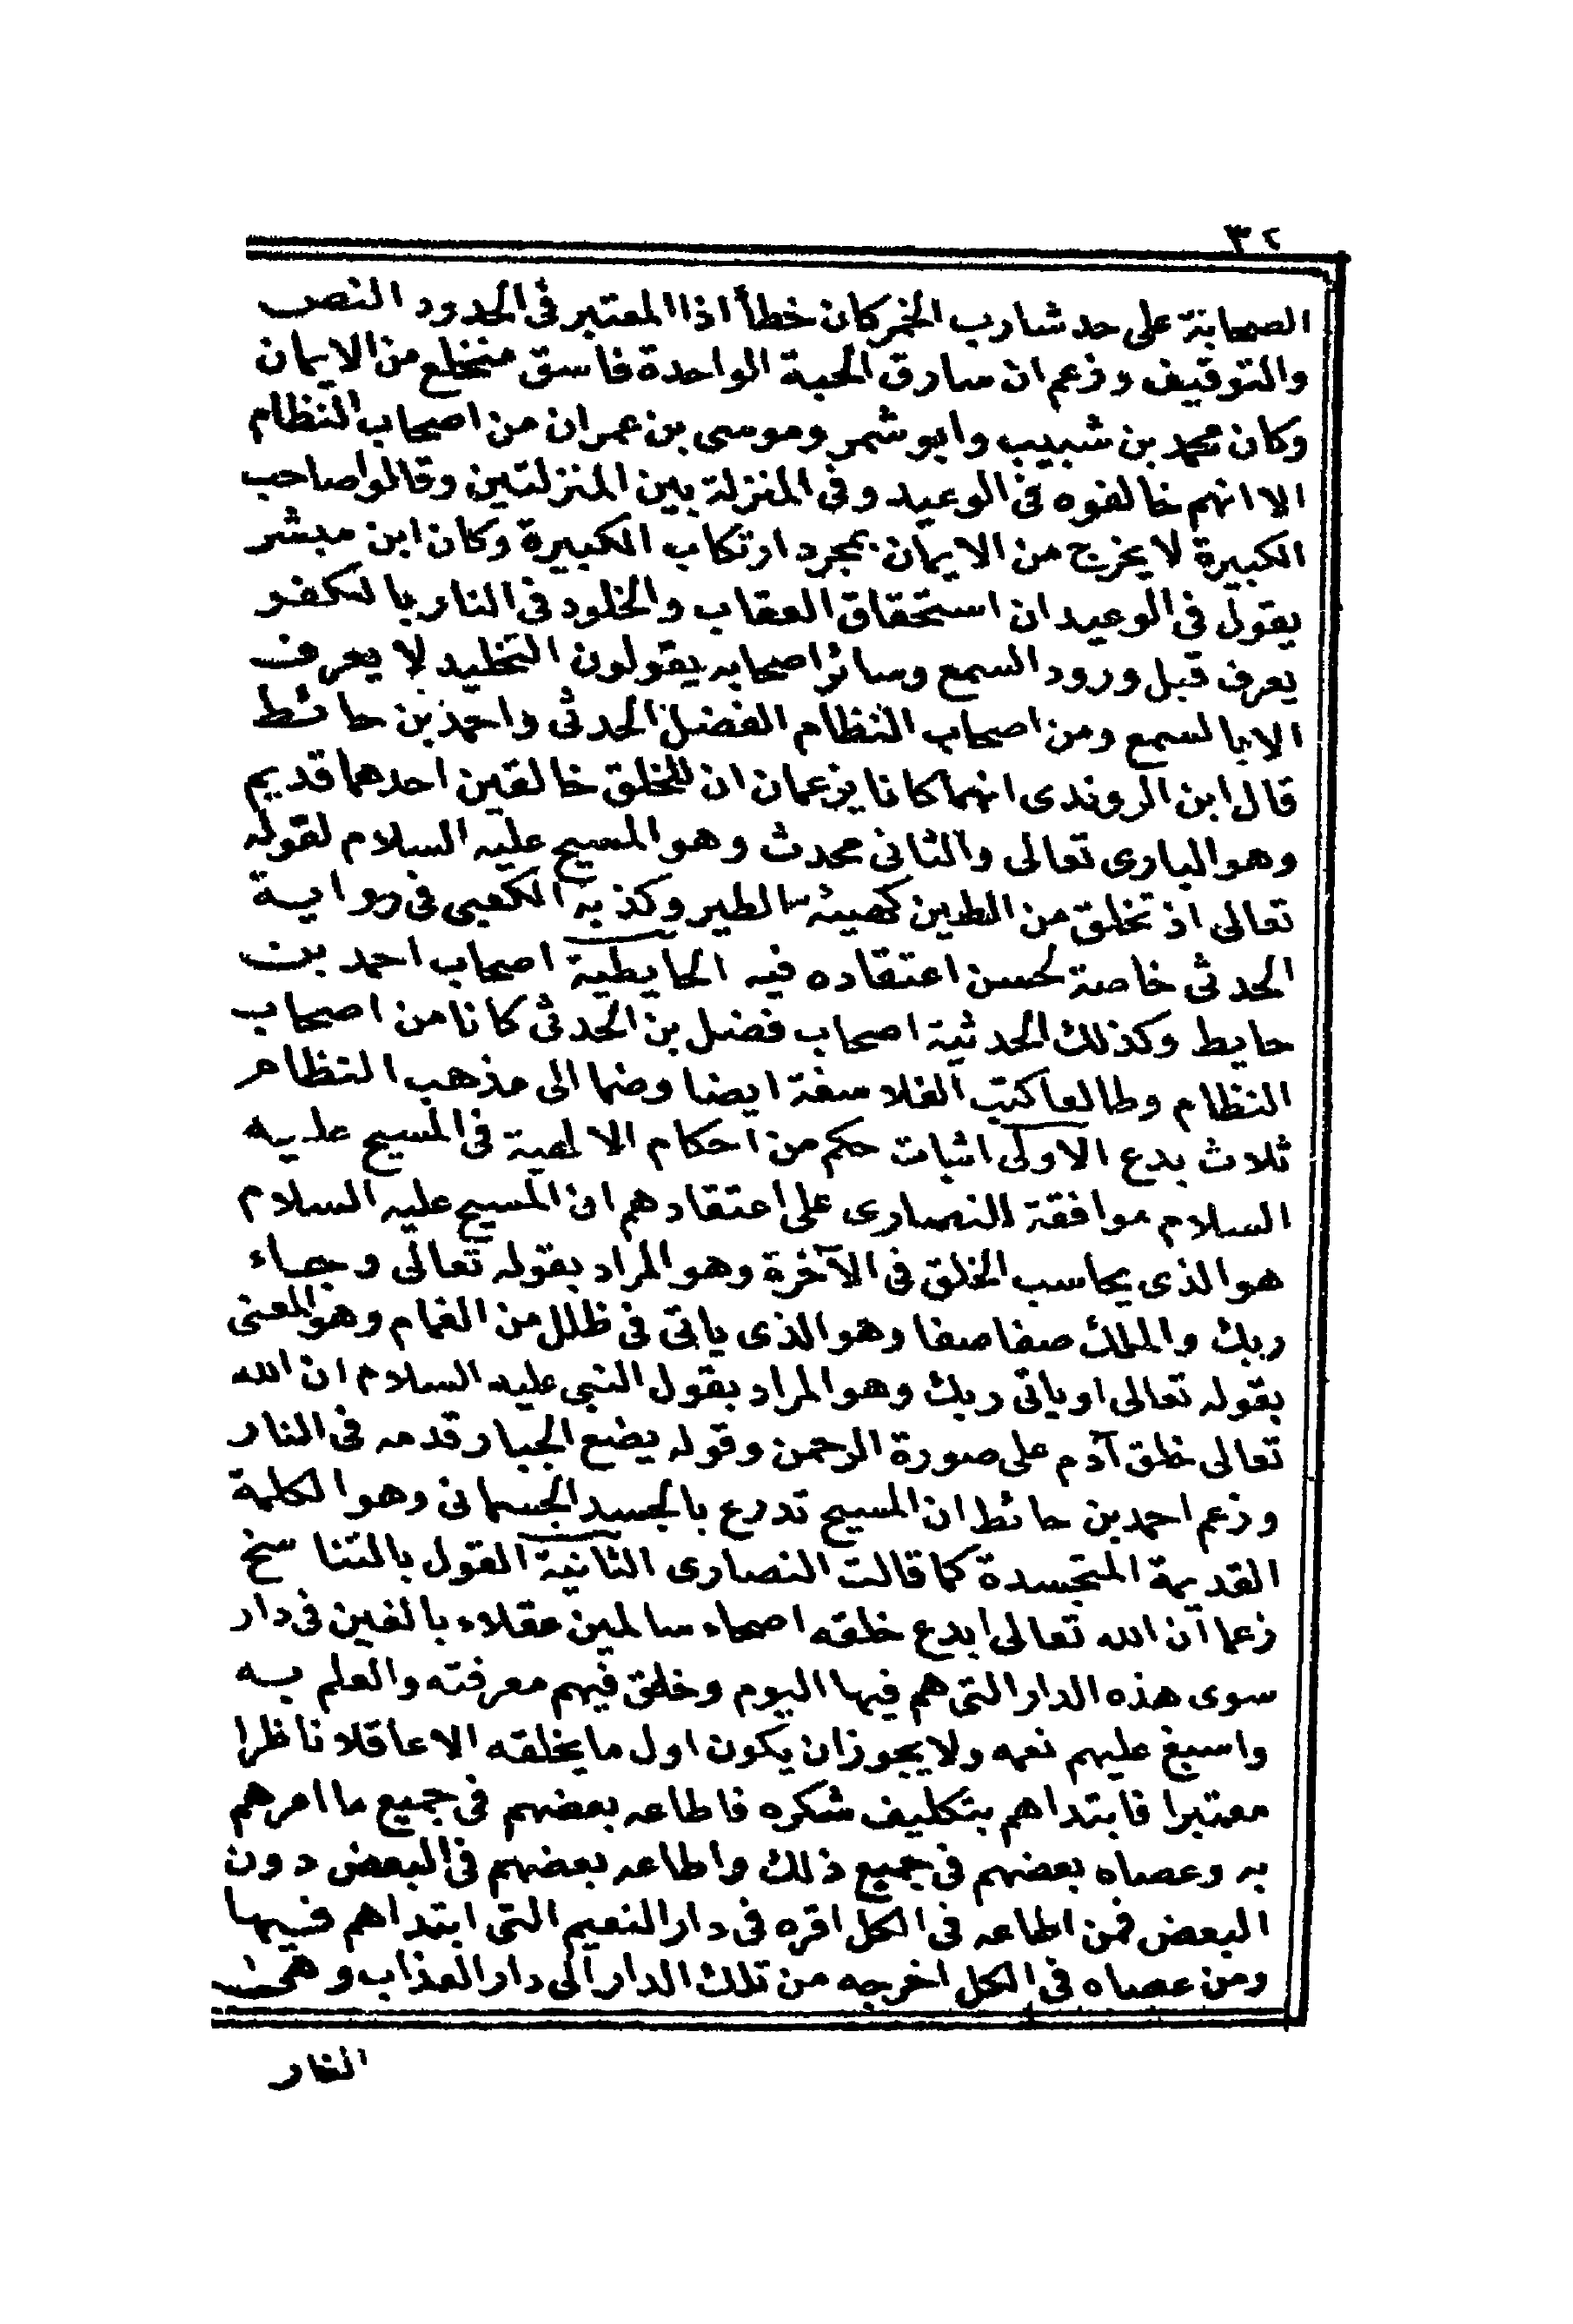 ٣٢
الصحابة على حد شارب الخمر كان خطأ اذا المعتبر فى الحدود النص
والتوقيف وزعم ان سارق الحبة الواحدة فاسق منخلع من الايمان
وكان محمد بن شبيب وابو شمر وموسى بن عمران من اصحاب النظام
الا انهم خالفوه فى الوعيد وفى المنزلة بين المنزلتين وقالوا صاحب
الكبيرة لا يخرج من الايمان بمجرد ارتكاب الكبيرة وكان ابن مبشر
يقول فى الوعيد ان استحقاق العقاب والخلود فى النار بالكفر
يعرف قبل ورود السمع وسائر اصحابه يقولون التخليد لا يعرف
الا بالسمع ومن اصحاب النظام الفضل الحدثى واحمد بن حائط
قال ابن الروندى انهما كانا يزعمان ان للخلق خالقين احدهما قديم
وهو البارى تعالى والثانى محدث وهو المسيح عليه السلام لقوله
تعالى اذ تخلق من الطين كهيئة الطير وكذبه الكعبى فى رواية
الحدثى خاصة لحسن اعتقاده فيه الحايطية اصحاب احمد بن
حايط وكذلك الحدثية اصحاب فضل بن الحدثى كانا من اصحاب
النظام وطالعا كتب الفلاسفة ايضا وضما الى مذهب النظام
ثلاث بدع الاولى اثبات حكم من احكام الالهية فى المسيح عليه
السلام موافقة النصارى على اعتقادهم ان المسيح عليه السلام
هو الذى يحاسب الخلق فى الآخرة وهو المراد بقوله تعالى وجاء
ربك والملك صفا صفا وهو الذى ياتى فى ظلل من الغمام وهو المعنى
بقوله تعالى او ياتى ربك وهو المراد بقول النبى عليه السلام ان الله
تعالى خلق آدم على صورة الرحمن وقوله يضع الجبار قدمه فى النار
وزعم احمد بن حائط ان المسيح تدرع بالجسد الجسمانى وهو الكلمة
القديمة المتجسدة كما قالت النصارى الثانية القول بالتناسخ
زعما ان الله تعالى ابدع خلقه اصحاء سالمين عقلاء بالغين فى دار
سوى هذه الدار التى هم فيها اليوم وخلق فيهم معرفته والعلم به
واسبغ عليهم نعمه ولا يجوز ان يكون اول ما يخلقه الا عاقلا ناظرا
معتبرا فابتداهم بتكليف شكره فاطاعه بعضهم فى جميع ما امرهم
به وعصاه بعضهم فى جميع ذلك واطاعه بعضهم فى البعض دون
البعض فمن اطاعه فى الكل اقره فى دار النعيم التى ابتداهم فيها
ومن عصاه فى الكل اخرجه من تلك الدار الى دار العذاب وهى
النار